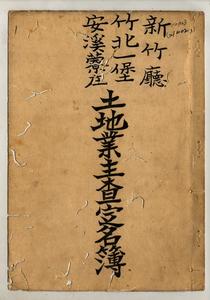 新竹廳
竹北一堡
安溪藔庄
土地業主查定名簿